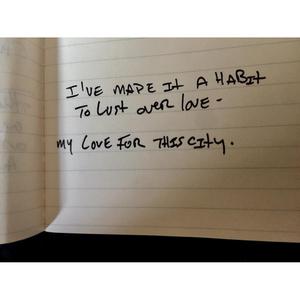 I'VE MADE It A HABIt
To LUST OVER LOVE -
MY LOVE FOR THIS CIty.